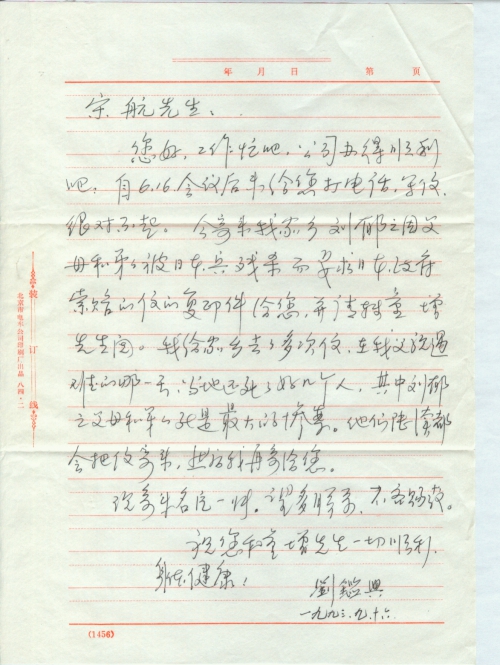 年 月 日 第 页
宋航先生：
您好，工作忙吧，公司办得顺利
吧，自6.16.会议后未给您打电话、写信，
很对不起。今寄来我家乡刘郁之因父
母和弟弟被日本兵残杀而要求日本政府
索赔的信的复印件给您，并请转童增
先生阅。我给家乡去了多次信，在我父亲遇
难的那一天，当地还死了好几个人，其中刘郁
之父母和弟弟死是最大的惨案。他们陆续都
会把信寄来，然后我再寄给您。
现寄来名片一张。望多联系，不多
祝您和童增先生一切顺利，
身体健康！
劉鑑興
一九九三.九.十六.
装订线
北京市电车公司印刷厂出品 八四·二
(1456)